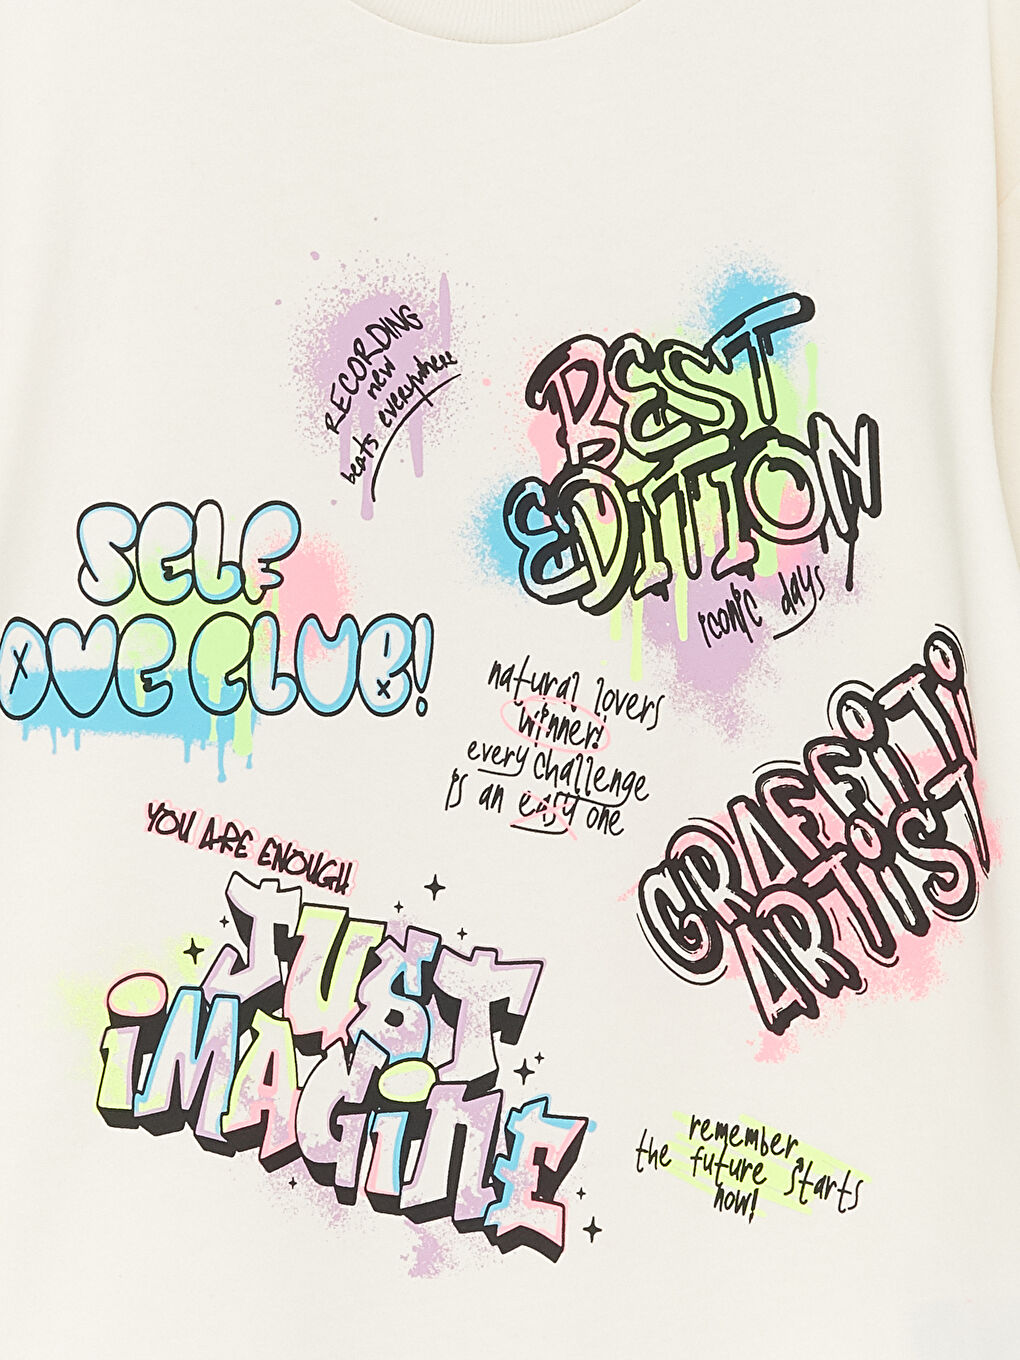 RECORDING
new
beats everywhere
BEST
EDITION
iconic days
SELF
OVE CLUB!
natural lovers
winner!
every challenge
is an easy one
GRAFFITI
ARTIST
YOU ARE ENOUGH
JUST
iMAGiNE
remember
the future starts
now!